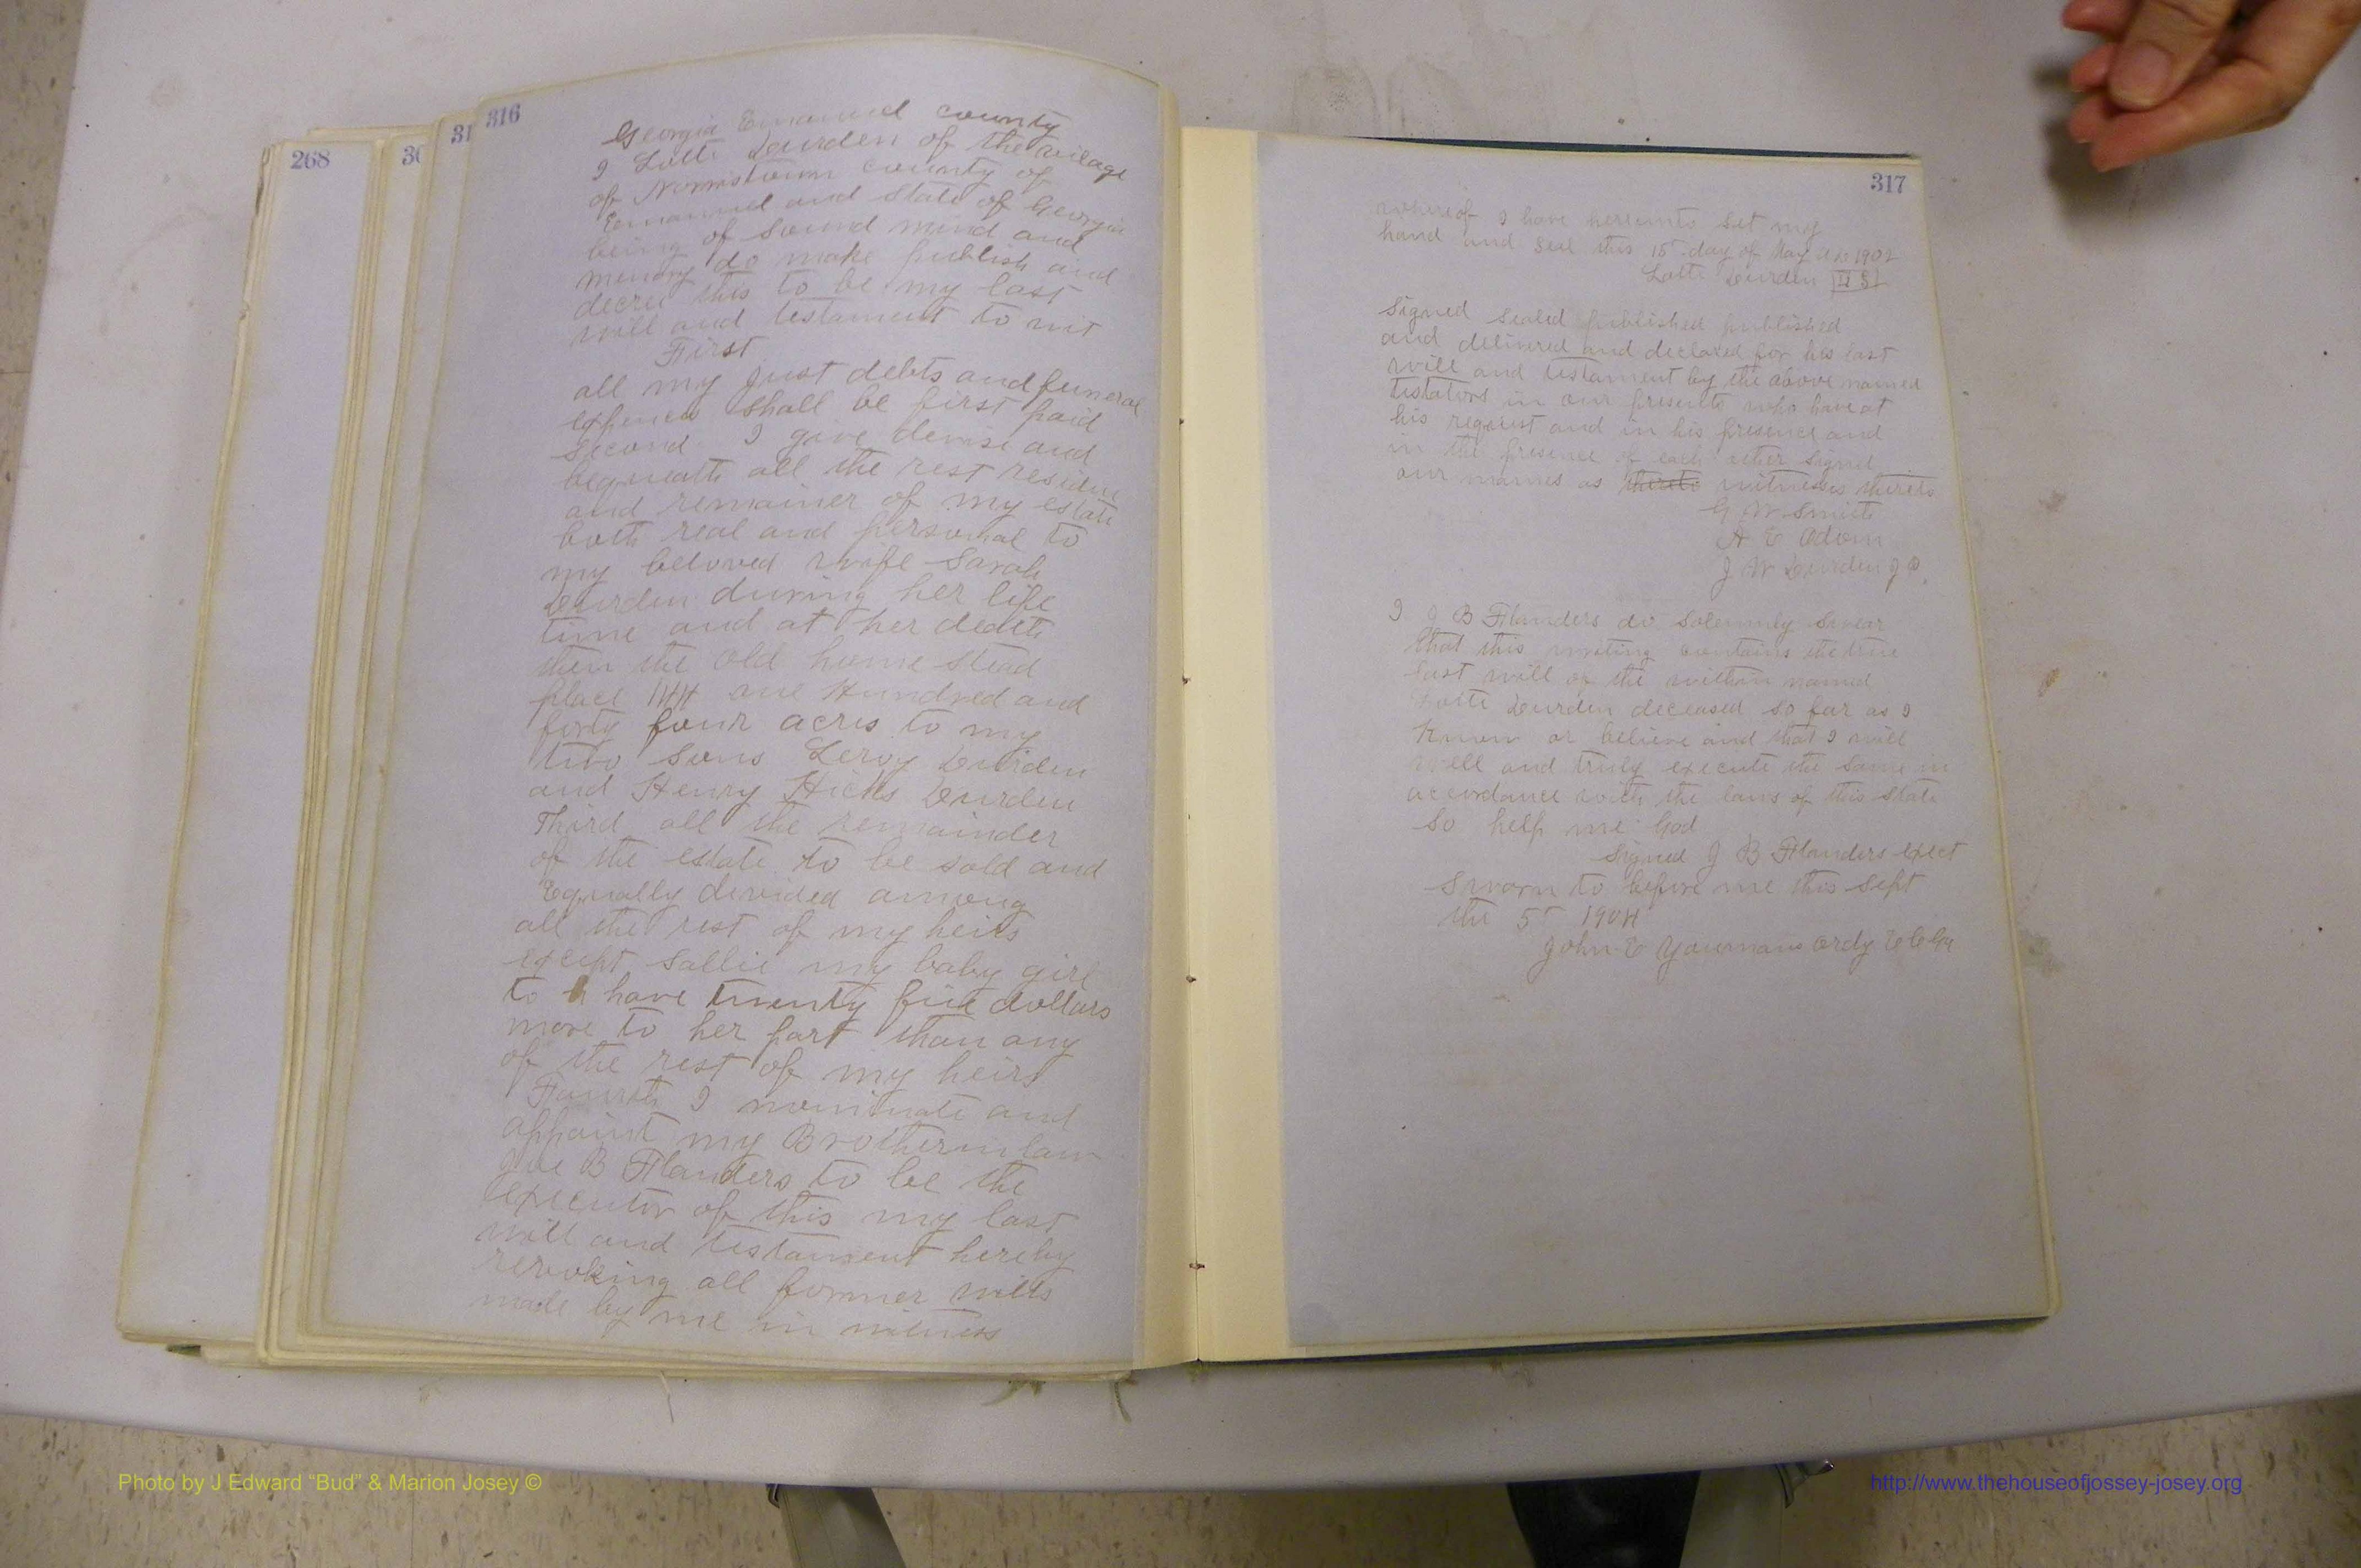 268
30
31
316
Georgia Emanuel county
I Lotti Durden of the vilage
of Norristown county of
Emanuel and State of Georgia
being of sound mind and
memory do make publish and
decree this to be my last
will and testament to wit
First
all my just debts and funeral
expences shall be first paid
Second I give devise and
bequeath all the rest residue
and remainer of my estate
both real and personal to
my beloved wife Sarah
Durden during her life
time and at her death
then the old home stead
place 144 one Hundred and
forty four acres to my
two sons Leroy Durden
and Henry Hicks Durden
Third all the remainder
of the estate to be sold and
Equally divided among
all the rest of my heirs
except Sallie my baby girl
to have twenty five dollars
more to her part than any
of the rest of my heirs
Fourth I nominate and
appoint my Brotherinlaw
Joe B Flanders to be the
executor of this my last
will and testament hereby
revoking all former wills
made by me in witness
317
whereof I have hereunto set my
hand and seal this 15 day of May AD 1902
Lotti Durden LS
Signed sealed published published
and delivered and declared for his last
will and testament by the above named
testators in our presents who have at
his request and in his presence and
in the presence of each other signed
our names as thereto witnesses thereto
G W Smith
A E Odom
J W Durden J P.
I J B Flanders do solemnly swear
that this writing contains the true
last will of the within named
Lotti Durden deceased so far as I
Know or believe and that I will
well and truly execute the same in
accordance with the laws of this State
So help me God
Signed J B Flanders Exect
Sworn to before me this Sept
the 5 1904
John E Youmans Ordy E C Ga
Photo by J Edward “Bud” & Marion Josey ©
http://www.thehouseofjossey-josey.org